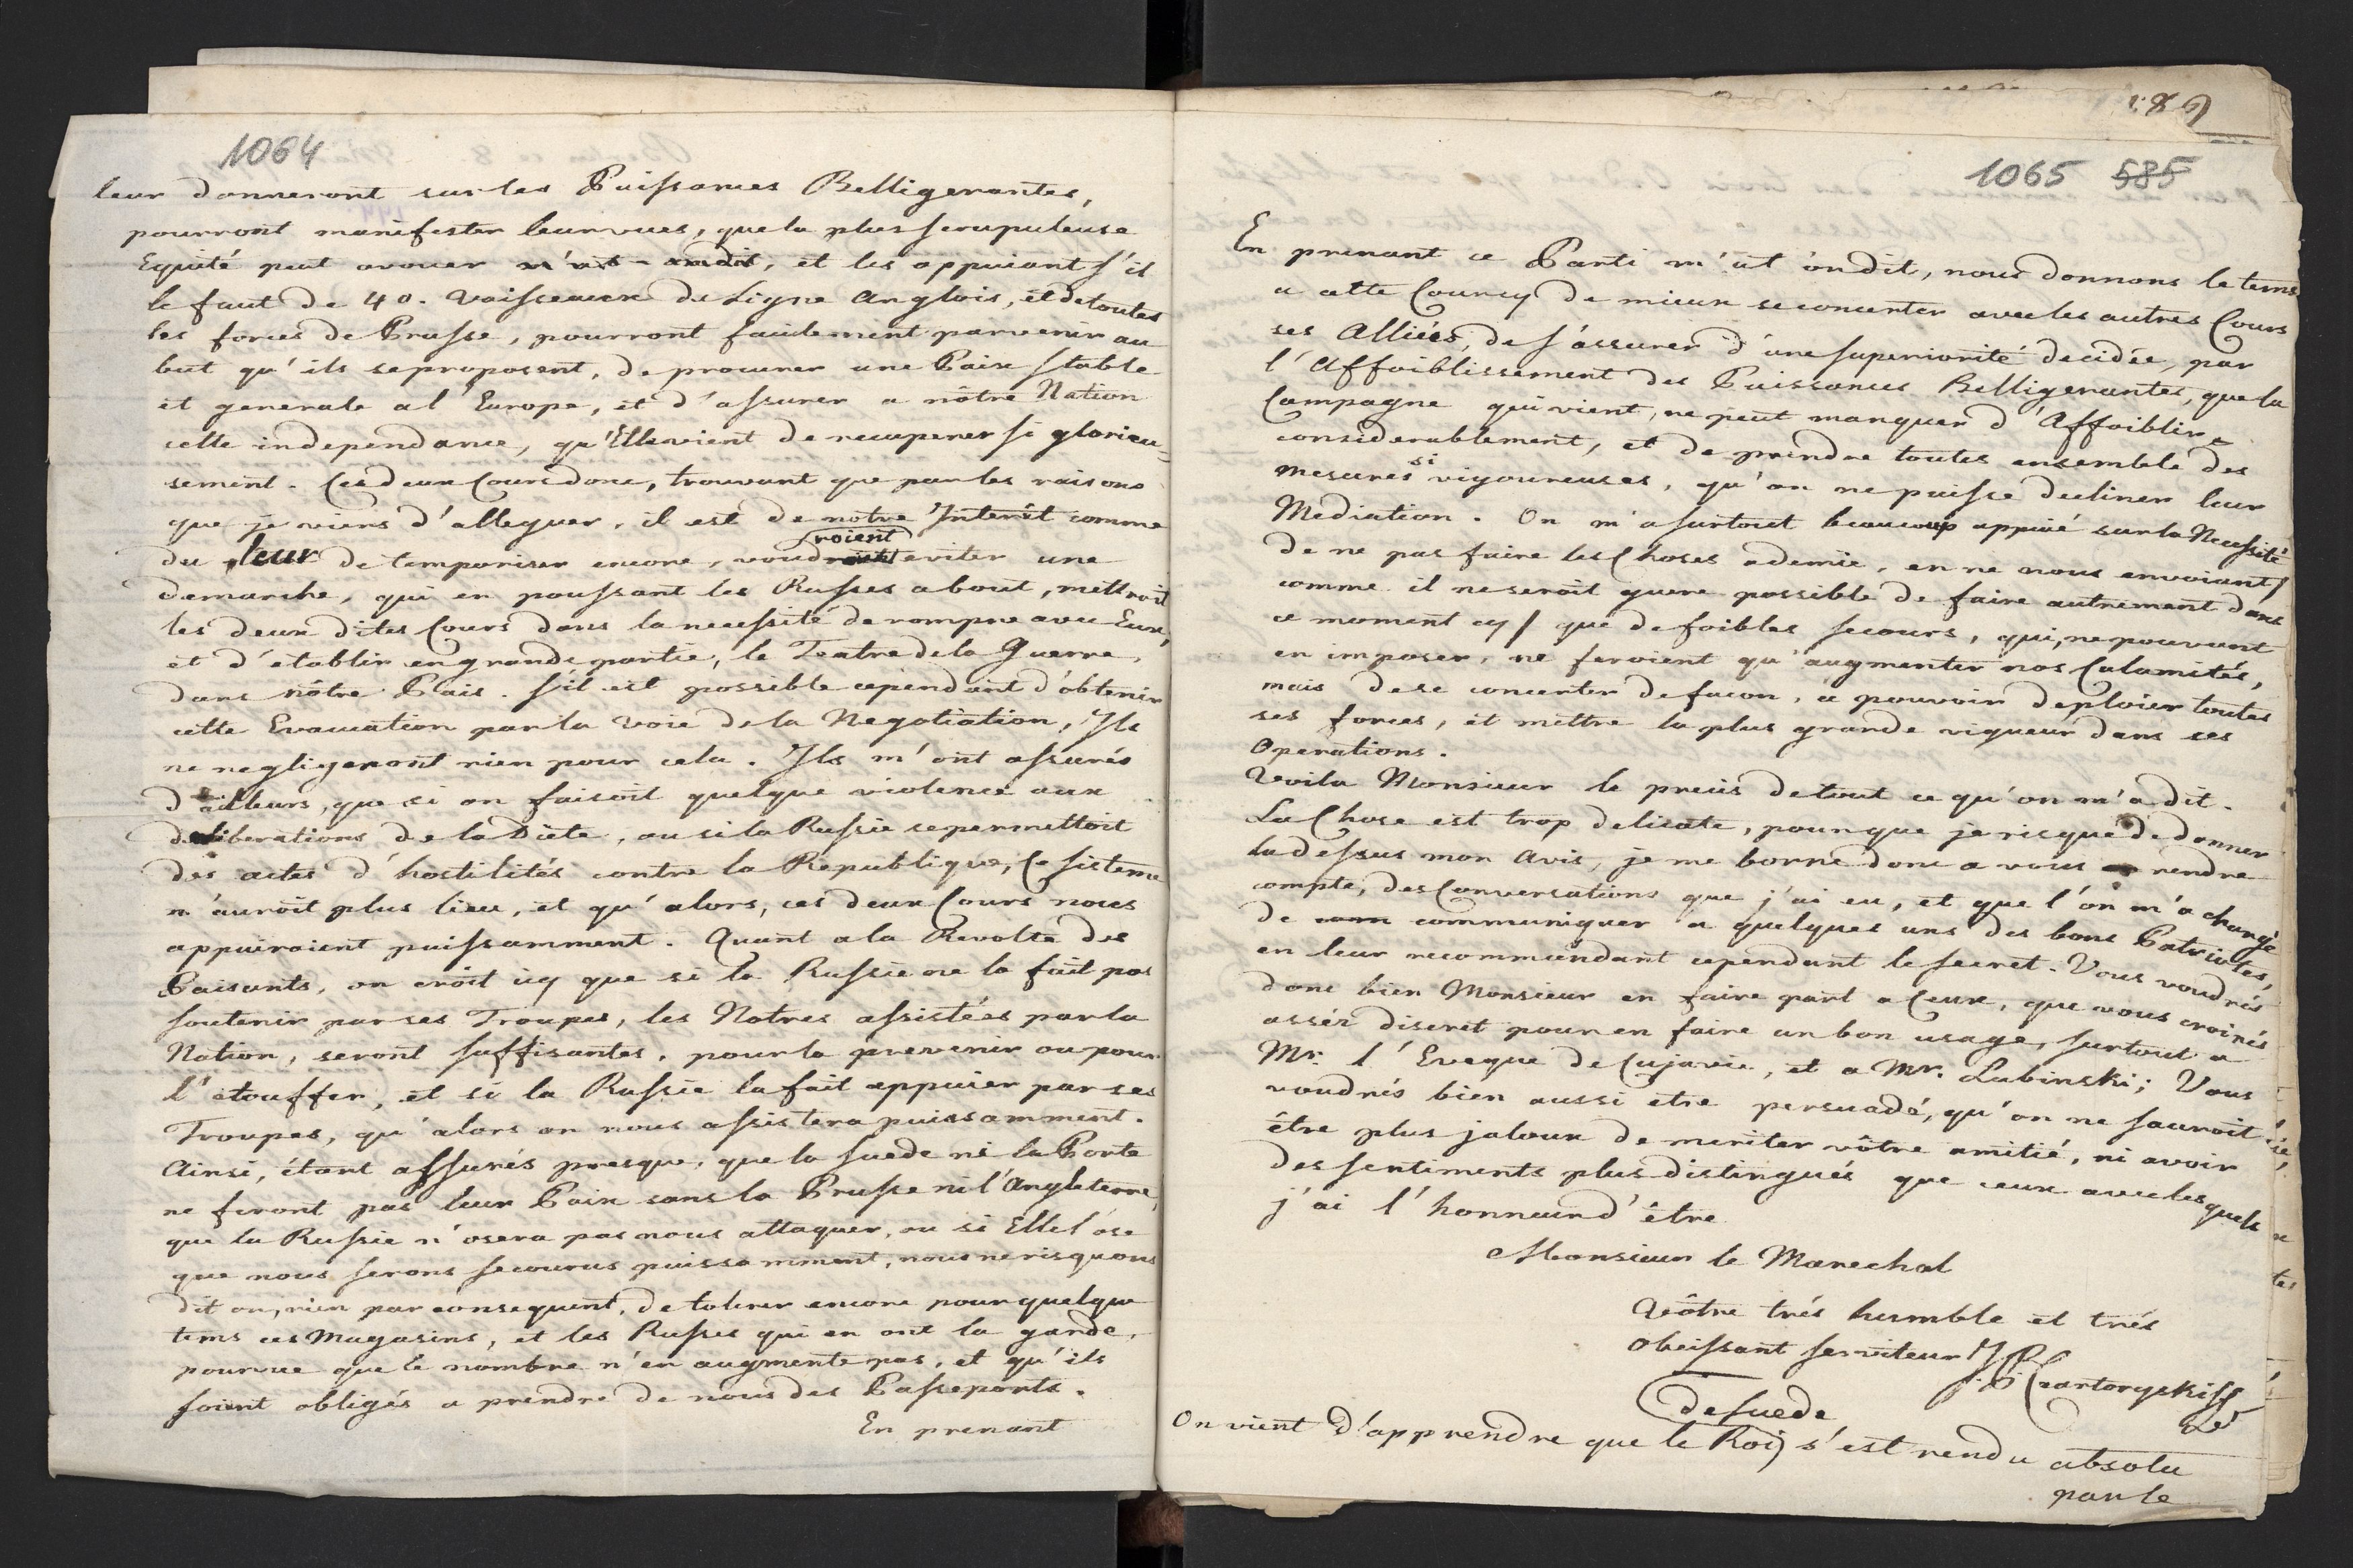 1064
leur donneront sur les Puissances Belligerantes,
pourront manifester leur vues, que la plus scrupuleuse
Equité peut avouer m'at-on dit, et les appuiant s'il
le faut de 40. Vaisseaux de Ligne Anglois, et de toutes
les forces de Prusse, pourront facilement parvenir au
but qu'ils se proposent, de procurer une Paix stable
et generale a l'Europe, et d'assurer a nôtre Nation
cette independance, qu'Elle vient de recuperer si glorieu=
sement. Ces deux Cours donc, trouvant que par les raisons
que je viens d'alleguer, il est de notre Interêt comme
du leur de temporiser encore, voudroient eviter une
demarche, qui en poussant les Russes a bout, mettroit
les deux dites Cours dans la necessité de rompre avec Eux,
et d'établir en grande partie, le Teatre de la Guerre,
dans nôtre Païs. S'il est possible cependant d'obtenir
cette Evacuation par la voie de la Negotiation, Ils
ne negligeront rien pour cela. Ils m'ont assurés
d'ailleurs, que si on faisoit quelque violence aux
deliberations de la Diete, ou si la Russie se permettoit
des actes d'hostilités contre la Republique, Ce sisteme
n'auroit plus lieu, et qu'alors, ces deux Cours nous
appuiroient puissamment. Quant a la Revolte des
Paisants, on croit icy que si la Russie ne la fait pas
soutenir par ses Troupes, les Notres assistées par la
Nation, seront suffisantes, pour la prevenir ou pour
l'étouffer, et si la Russie la fait appuier par ses
Troupes, qu'alors on nous assistera puissamment.
Ainsi, étant assurés presque, que la Suede ni la Porte
ne feront pas leur Paix sans la Prusse ni l'Angleterre,
que la Russie n'osera pas nous attaquer, ou si Elle l'ose
que nous serons secourus puissamment, nous ne risquons
dit on, rien par consequent, de tolerer encore pour quelque
tems ces Magasins, et les Russes qui en ont la garde,
pourvue que le nombre n'en augmente pas, et qu'ils
soient obligés a prendre de nous des Passeports.
En prenant
1065 585
En prenant ce Parti m'at on dit, nous donnons le tems
a cette Cour cy de mieux se concerter avec les autres Cours
ses Alliées, de s'assurer d'une superiorité decidée, par
l'Affoiblissement des Puissances Belligerantes, que la
Campagne qui vient, ne peut manquer d'Affoiblir
considerablement, et de prendre toutes ensemble des
mesures si vigoureuses, qu'on ne puisse decliner leur
Mediation. On m'a surtout beaucoup appuié sur la Necessité
de ne pas faire les Choses a demie, en ne nous envoiant /
comme il ne seroit guere possible de faire autrement dans
ce moment cy / que de foibles secours, qui, ne pouvant
en imposer, ne feroient qu'augmenter nos Calamités,
mais de se concerter de facon, a pouvoir deploier toutes
ses forces, et mettre la plus grande vigueur dans ses
Operations.
Voila Monsieur le precis de tout ce qu'on m'a dit.
La Chose est trop delicate, pour que je risque de donner
la dessus mon Avis, je me borne donc a vous rendre
compte, des Conversations que j'ai eu, et que l'on m'a chargé
de communiquer a quelques uns des bons Patriotes,
en leur recommandant cependant le secret. Vous voudrés
donc bien Monsieur en faire part a Ceux, que vous croirés
assér discret pour en faire un bon usage, surtout a
Mr. l'Eveque de Cujavie, et a Mr. Lubinski; Vous
voudrés bien aussi etre persuadé, qu'on ne sauroit
être plus jaloux de meriter vôtre amitié, ni avoir
des sentiments plus distingués que ceux avec lesquels
j'ai l'honneur d'être
Monsieur le Marechal
Vôtre trés humble et trés
obeissant serviteur J. Czartoryski
de Suede
On vient d'apprendre que le Roi s'est rendu absolu
par le